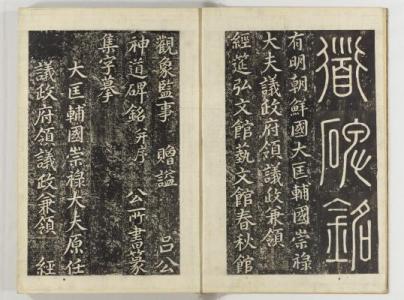 道碑銘
有明朝鮮國大匡輔國崇祿
大夫議政府領議政兼領
經筵弘文館藝文館春秋館
觀象監事 贈謚 呂公
神道碑銘 并序 公所書篆
集字摹
大匡輔國崇祿大夫原任
議政府領議政兼領 經